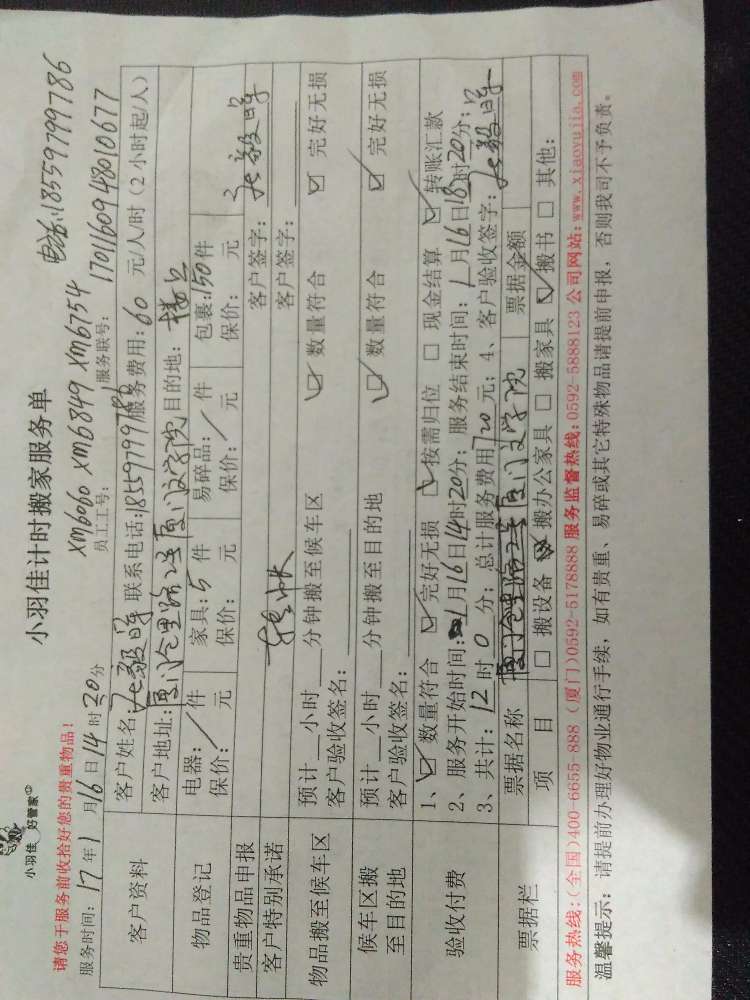 小羽佳 好管家
小羽佳计时搬家服务单
电话:18559799786
请您于服务前收拾好您的贵重物品!
xm6060 xm6849 xm6754
服务时间: 17 年 1 月 16 日 14 时 20 分
员工工号:
服务联号: 1701160948010677
客户资料
客户姓名: 毅 联系电话: 18559799786 服务费用: 60 元/人/时 (2小时起/人)
客户地址: 厦门仓里路 号厦门文学院 目的地: 楼上
物品登记
电器: / 件 家具: 5 件 易碎品: / 件 包裹: 150 件
保价: 元 保价: 元 保价: / 元 保价: 元
贵重物品申报
客户签字: 毅
客户特别承诺
客户签字:
物品搬至候车区
预计 小时 分钟搬至候车区 ☑ 数量符合 ☑ 完好无损
客户验收签名:
候车区搬至目的地
预计 小时 分钟搬至目的地 ☑ 数量符合 ☑ 完好无损
客户验收签名:
验收付费
1、☑ 数量符合 ☑ 完好无损 ☑ 按需归位 □ 现金结算 ☑ 转账汇款
2、服务开始时间: 1 月 16 日 14 时 20 分; 服务结束时间: 1 月 16 日 18 时 20 分;
3、共计: 12 时 0 分; 总计服务费用 720 元; 4、客户验收签字: 毅
票据栏
票据名称 厦门仓里路 号厦门文学院 票据金额
项 目 □ 搬设备 ☑ 搬办公家具 □ 搬家具 ☑ 搬书 □ 其他:
服务热线:(全国)400-6655-888 (厦门)0592-5178888 服务监督热线:0592-5888123 公司网站:www.xiaoyujia.com
温馨提示: 请提前办理好物业通行手续, 如有贵重、易碎或其它特殊物品请提前申报, 否则我司不予负责。